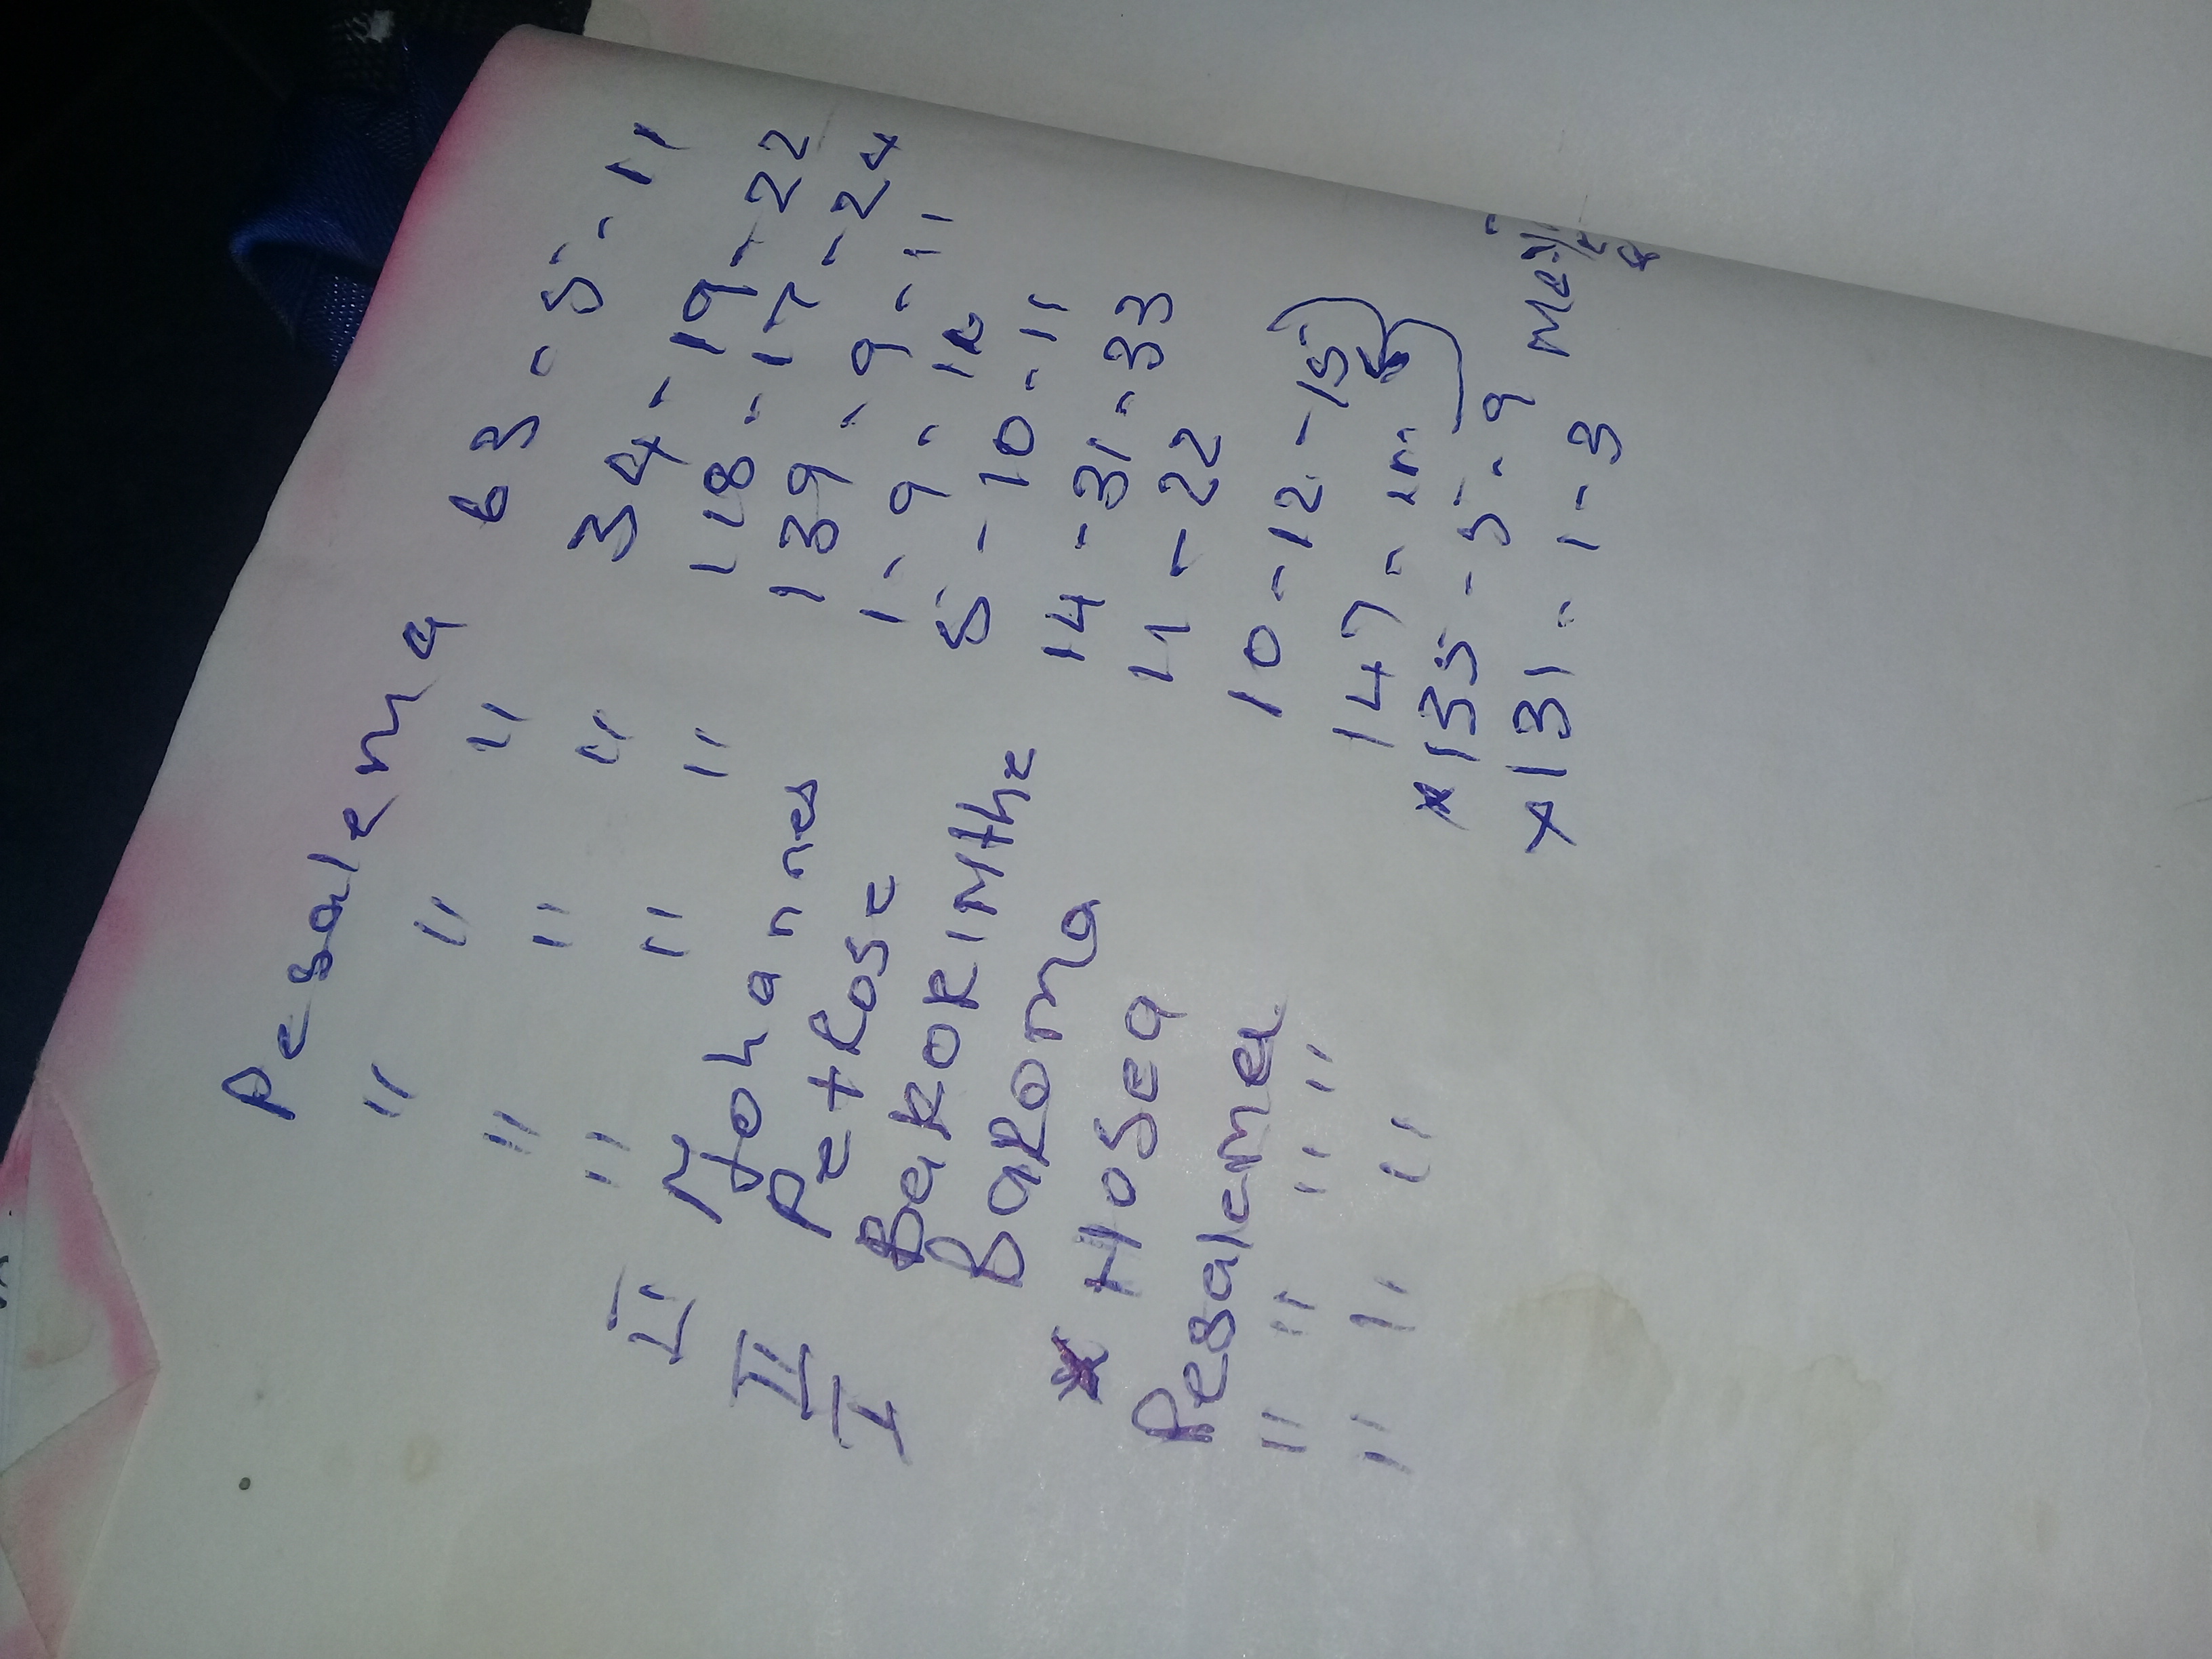 Pesalema 63 - 5 - 11
" " " 34 - 19 - 22
" " " 118 - 17 - 24
" " " 139 - 9 - 11
II Johannes 1 - 9 -
II PetRose 5 - 10 - 11
I BaKORINthe 14 - 31 - 33
BaRoma 11 - 22
* Hosea 10 - 12 - 15
Pesalema 147 -
" " " " * 135 - 5 - 9
" " " * 131 - 1 - 3